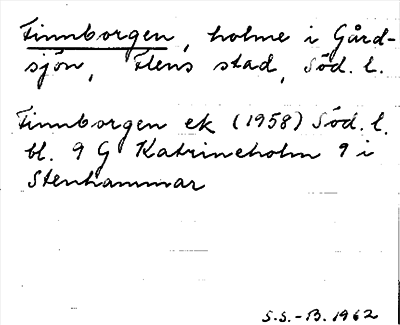 Finnborgen, holme i Gård-
sjön, Flens stad, Söd. l.
Finnborgen ek (1958) Söd. l.
bl. 9 G Katrineholm 9 i
Stenhammar
S.S.-B. 1962